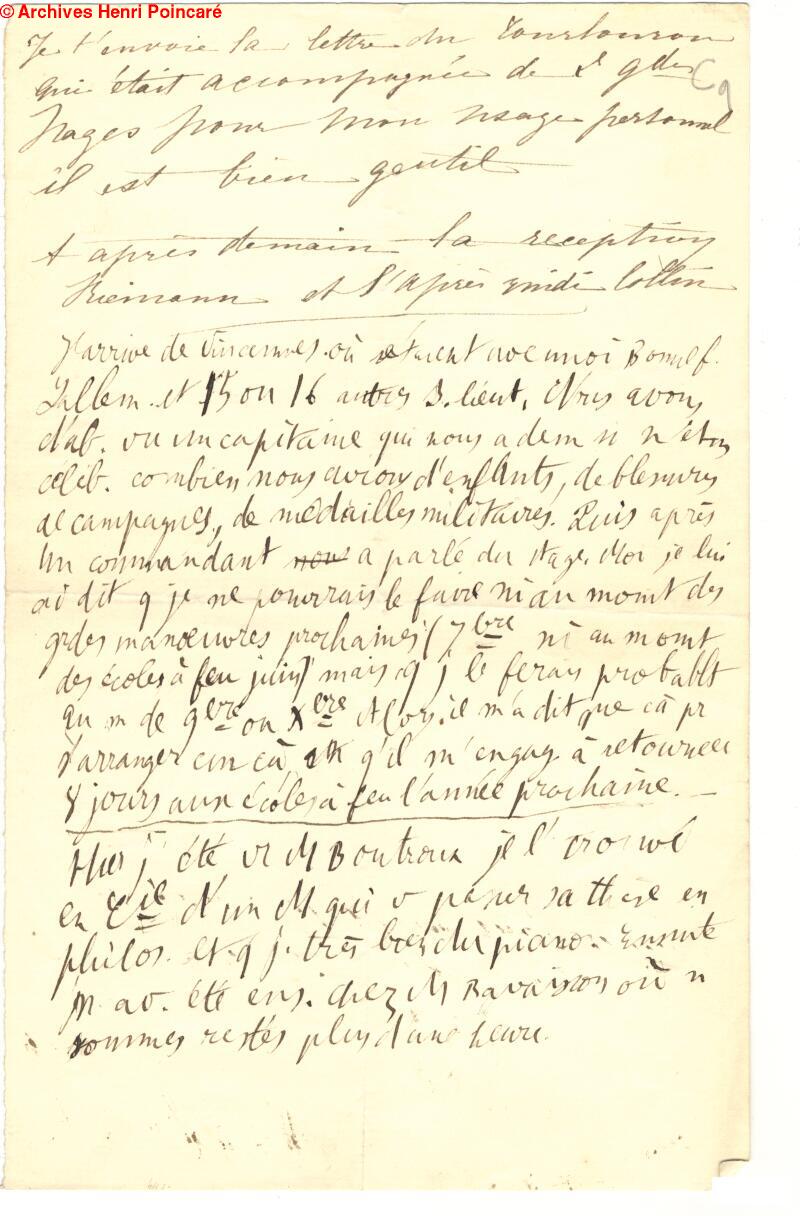 © Archives Henri Poincaré
Je t'envoie la lettre du Tourlouron
qui était accompagnée de 2 gdes
pages pour mon usage personnel
il est bien gentil
A après demain la reception
Riemann et l'après midi
J'arrive de Vincennes où étaient avec moi Bonnef.
et 15 ou 16 autres S. lieut. Nous avons
d'ab. vu un capitaine qui nous a dem si n étions
célib. combien nous avions d'enfants, de blessures
de campagnes, de médailles militaires. Puis après
un commandant nous a parlé du stage. Moi je lui
ai dit q je ne pourrais le faire ni au momt des
gdes manœuvres prochaines (7bre ni au momt
des écoles à feu juin) mais q j le ferais probablt
au m de 9bre ou Xbre Alors il m'a dit que ça pr
s'arranger com ça, et qu'il m'engag. à retourner
8 jours aux écoles à feu l'année prochaine. —
Hier j' été vr M Boutroux je l' trouvé
en Cie d'un M qui v passer sa thèse en
philos. et q j. très bien du piano. Ensuite
n av. été ens. chez M Ravaisson où n
sommes restés plus d'une heure.